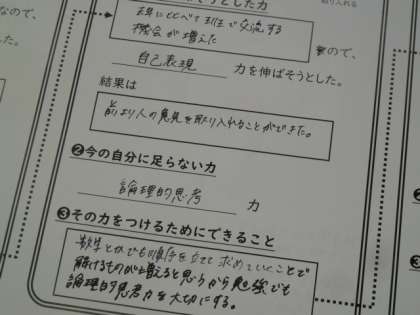 うとした力
前に比べて班で交流する
機会が増えた
ので、
自己表現 力を伸ばそうとした。
結果は
前より人の意見を取り入れることができた。
❷今の自分に足らない力
論理的思考 力
❸その力をつけるためにできること
数学とかでも順序を立てて求めていくことで
解けるものが増えると思うから勉強でも
論理的思考力を大切にする。
なので、
した。
取り入れる